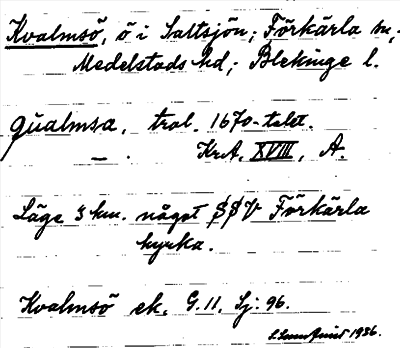 Kvalmsö, ö i Saltsjön, Förkärla sn,
Medelstads hd, Blekinge l.
Qualmsa, trol. 1670-talet.
— . KrA, XVIII, A.
Läge 3 km. något SSV Förkärla
kyrka.
Kvalmsö ek. G.11. Sj: 96.
1936.